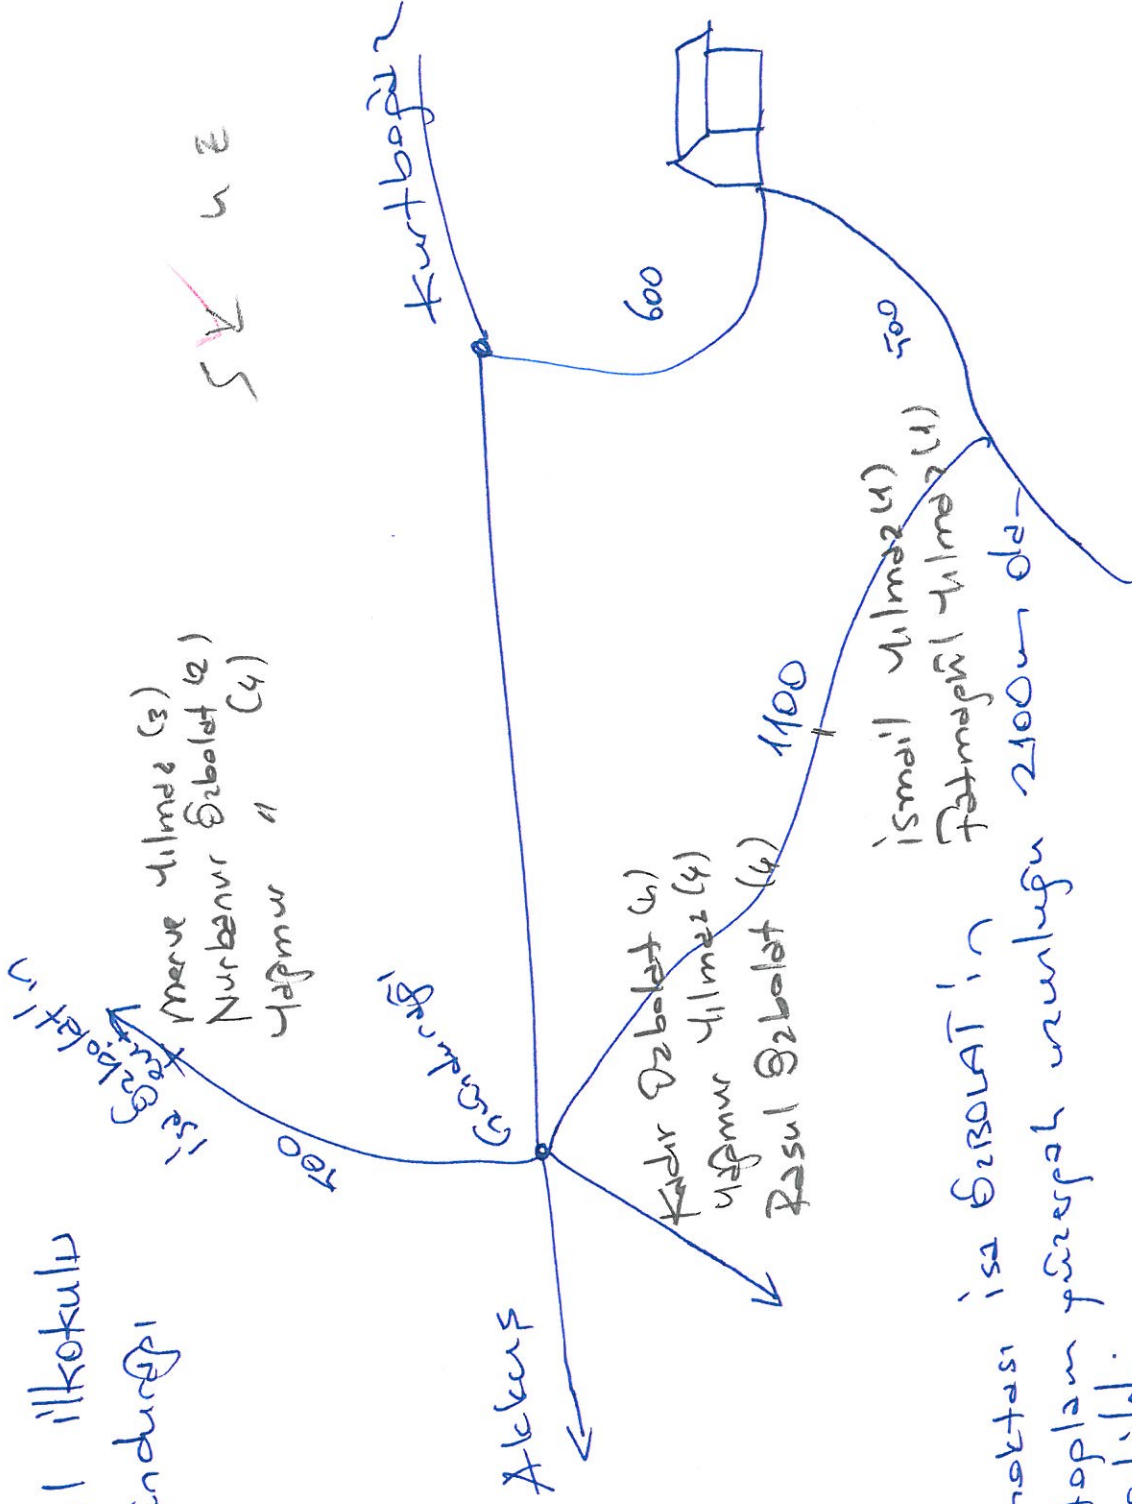 ilkokulu
Akkuş
500
İsa Özbolat'ın
evi
Merve Yılmaz (3)
Nurbanur Özbolat (2)
Yağmur " (4)
Kurtboğaz
600
500
1100
Kadir Özbolat (4)
Yağmur Yılmaz (4)
Rasul Özbolat (4)
İsmail Yılmaz (4)
Fatmagül Yılmaz (4)
noktası İsa ÖZBOLAT'ın
toplam güzergah uzunluğu 2100m da-